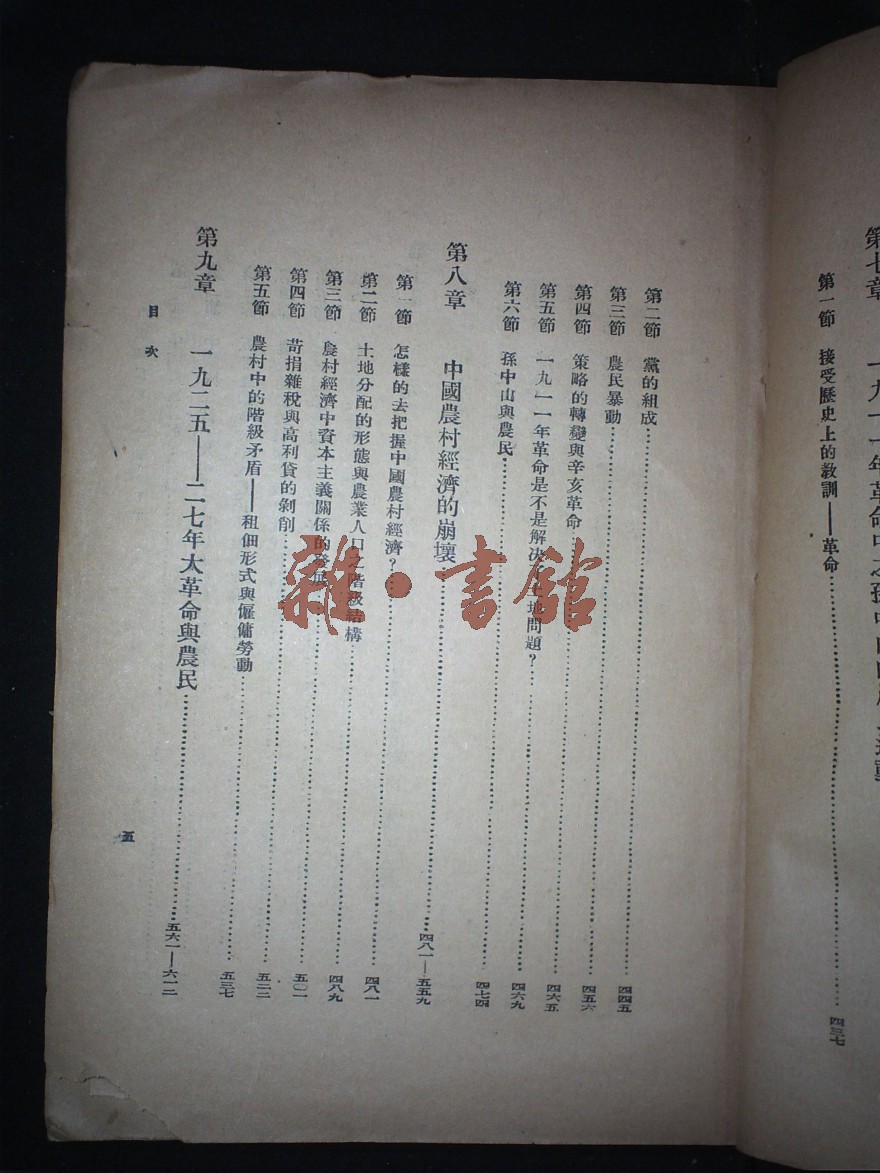 第七章 一九一一年革命中之孫中山
第一節 接受歷史上的教訓——革命 四三七
第二節 黨的組成 四四五
第三節 農民暴動 四五六
第四節 策略的轉變與辛亥革命 四六五
第五節 一九一一年革命是不是解決了土地問題？ 四六九
第六節 孫中山與農民 四七四
第八章 中國農村經濟的崩壞 四八一——五五九
第一節 怎樣的去把握中國農村經濟？ 四八一
第二節 土地分配的形態與農業人口之階級結構 四八九
第三節 農村經濟中資本主義關係的發展 五〇一
第四節 苛捐雜稅與高利貸的剝削 五二二
第五節 農村中的階級矛盾——租佃形式與僱傭勞動 五三七
第九章 一九二五——二七年大革命與農民 五六一——六一二
目次
五
雜·書館